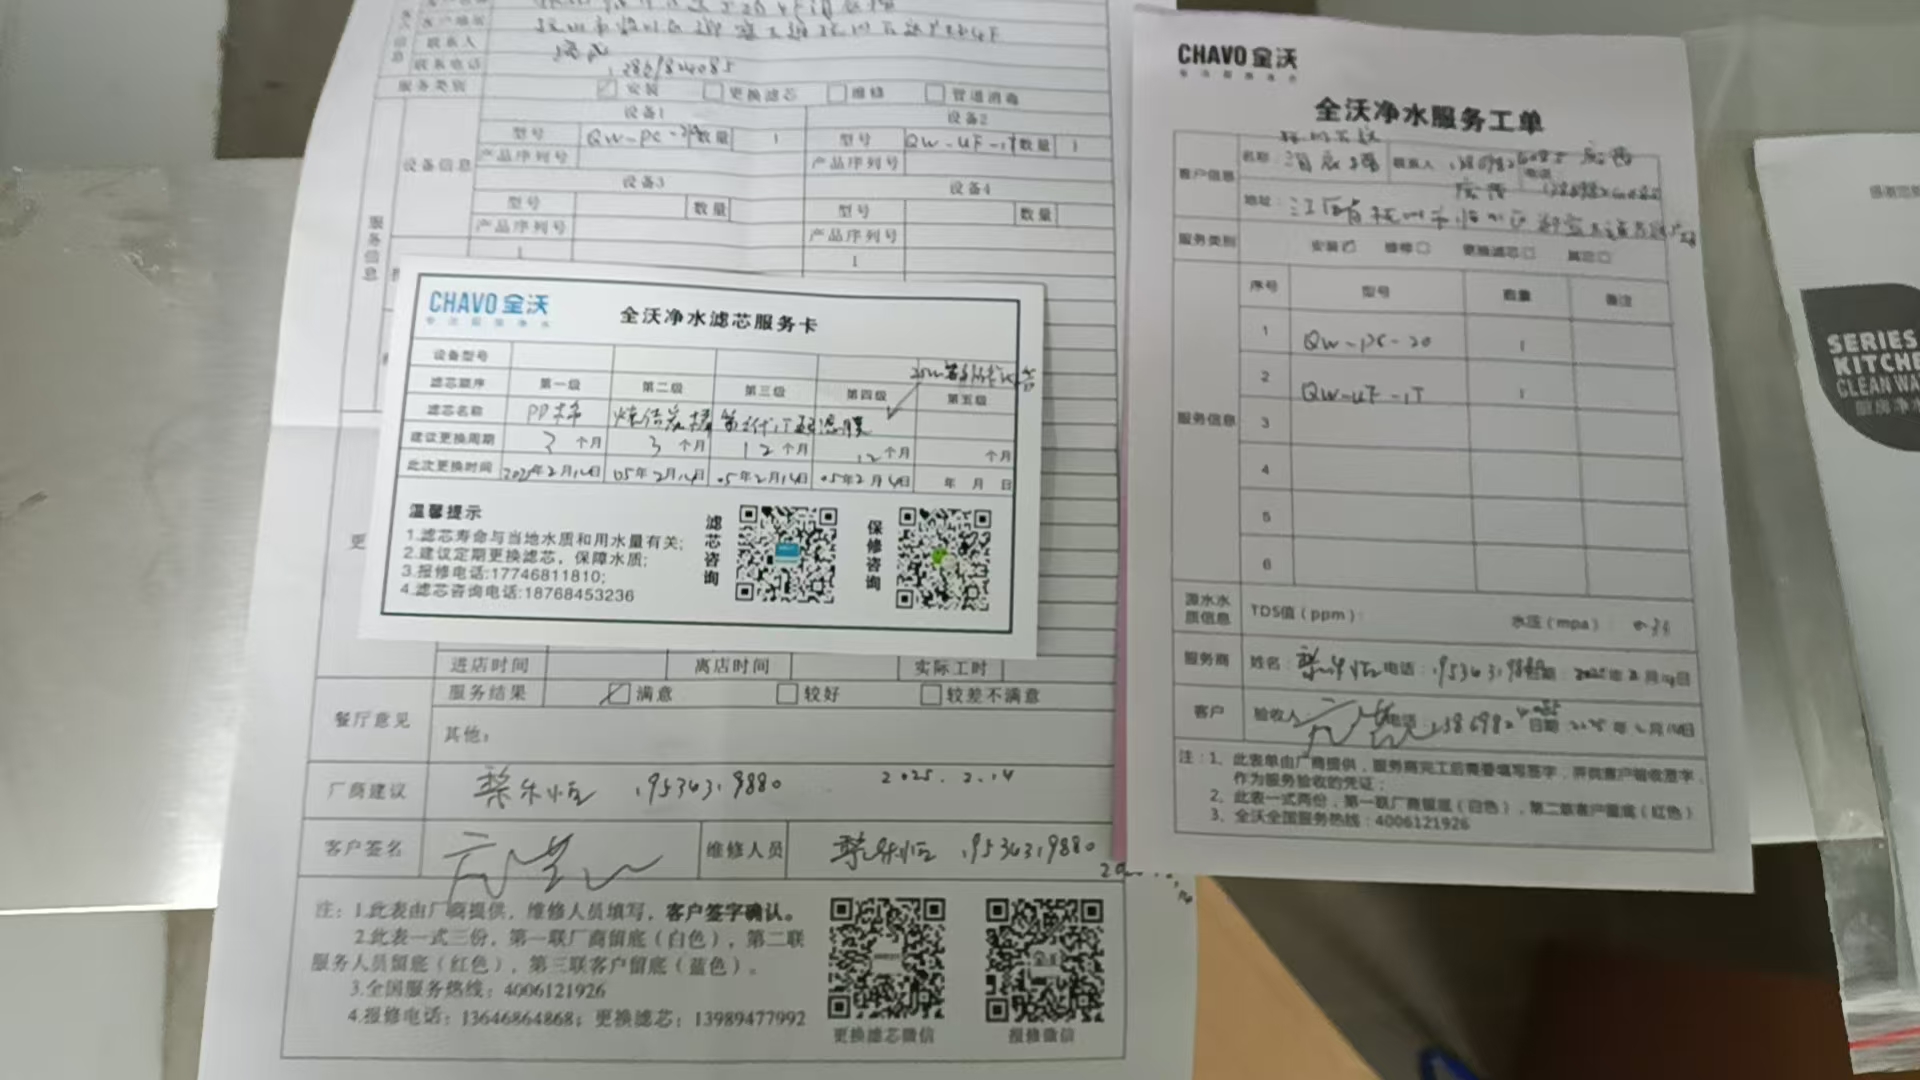 联系人
联系电话
服务类别 安装 更换滤芯 维修 管道消毒
设备信息
设备1 设备2
型号 QW-PC- 数量 1 型号 QW-UF-1T 数量 1
产品序列号 产品序列号
设备3 设备4
型号 数量 型号 数量
产品序列号 产品序列号
1 1
服务信息
更
进店时间 离店时间 实际工时
餐厅意见
服务结果 满意 较好 较差不满意
其他:
厂商建议 19534319880 2025.2.14
客户签名 维修人员 19534319880
注: 1.此表由厂商提供,维修人员填写,客户签字确认。
2.此表一式三份,第一联厂商留底(白色),第二联
服务人员留底(红色),第三联客户留底(蓝色)。
3.全国服务热线: 4006121926
4.报修电话: 13646864868; 更换滤芯: 13989477992
更换滤芯微信 报修微信
CHAVO 全沃
专注厨房净水
全沃净水滤芯服务卡
设备型号
滤芯顺序 第一级 第二级 第三级 第四级 第五级
滤芯名称 PP棉 烧结炭棒 超滤膜
建议更换周期 3个月 3个月 12个月 12个月 个月
此次更换时间 2025年2月14日 05年2月14日 05年2月14日 05年2月14日 年 月 日
温馨提示
1.滤芯寿命与当地水质和用水量有关;
2.建议定期更换滤芯,保障水质;
3.报修电话:17746811810;
4.滤芯咨询电话:18768453236
滤芯咨询
保修咨询
CHAVO 全沃
全沃净水服务工单
客户信息
名称 联系人 电话
地址: 江西省
服务类别 安装 维修 更换滤芯 其它
服务信息
序号 型号 数量 备注
1 QW-PC-20 1
2 QW-UF-1T 1
3
4
5
6
源水水质信息 TDS值(ppm) 水压(mpa)
服务商 姓名: 电话: 日期: 2025年2月14日
客户 验收人: 电话: 日期 2025年2月14日
注: 1、此表单由厂商提供,服务商完工后需要填写签字,并供客户验收签字,
作为服务验收的凭证;
2、此表一式两份,第一联厂商留底(白色),第二联客户留底(红色)
3、全沃全国服务热线: 4006121926
SERIES
KITCHE
CLEAN WA
厨房净水